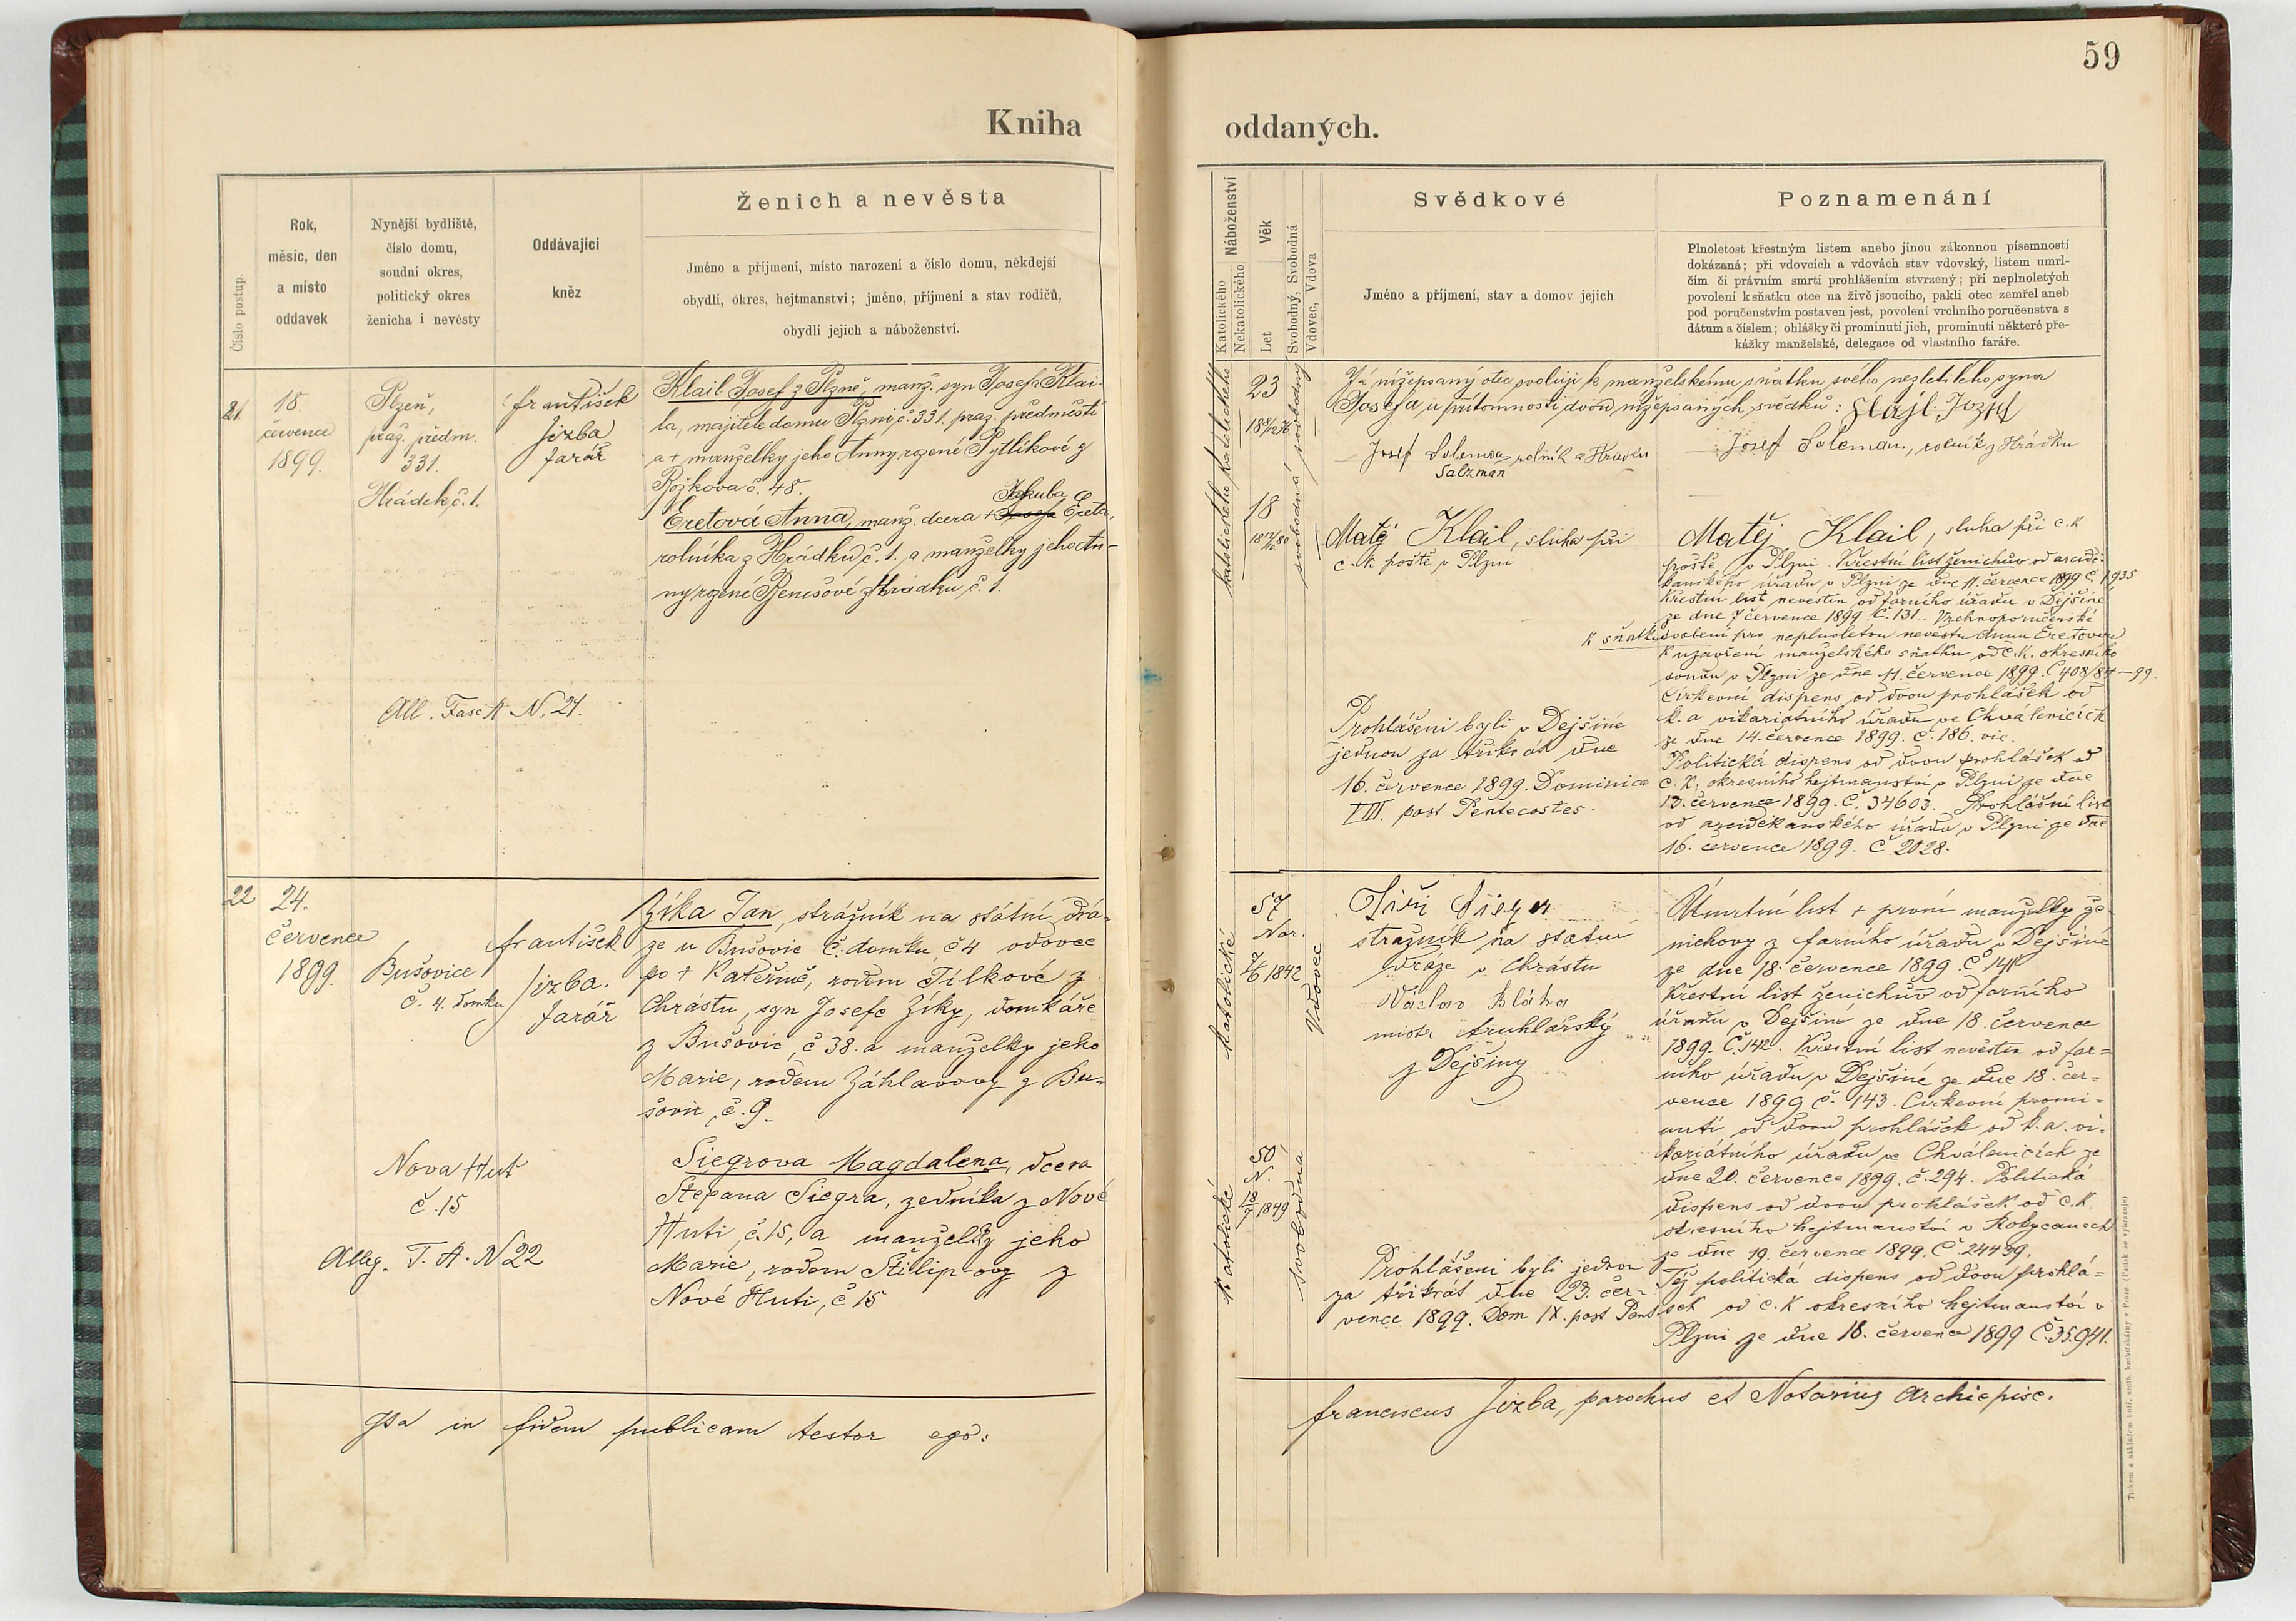 59
Kniha
oddaných.
Číslo postup.
Rok,
měsíc, den
a místo
oddavek
Nynější bydliště,
číslo domu,
soudní okres,
politický okres
ženicha i nevěsty
Oddávající
kněz
Ženich a nevěsta
Jméno a příjmení, místo narození a číslo domu, někdejší
obydlí, okres, hejtmanství; jméno, příjmení a stav rodičů,
obydlí jejich a náboženství.
Náboženství
Katolického
Nekatolického
Věk
Let
Svobodný, Svobodná
Vdovec, Vdova
Svědkové
Jméno a příjmení, stav a domov jejich
Poznamenání
Plnoletost křestným listem anebo jinou zákonnou písemností
dokázaná; při vdovcích a vdovách stav vdovský, listem umrl-
čím či právním smrti prohlášením stvrzený; při neplnoletých
povolení k sňatku otce na živě jsoucího, pakli otec zemřel aneb
pod poručenstvím postaven jest, povolení vrchního poručenstva s
dátum a číslem; ohlášky či prominutí jich, prominutí některé pře-
kážky manželské, delegace od vlastního faráře.
21.
18.
července
1899.
Plzeň,
praž. předm.
331.
Hrádek, č. 1.
František
Jizba
farář
Klail Josef z Plzně, manž. syn Josefa Klai-
la, majitele domu v Plzni, č. 331. praž. předměstí
a + manželky jeho Anny, rozené Pytlíkové z
Rožkova č. 48.
Jakuba
Eretová Anna, manž. dcera + Josefa Ereta,
rolníka z Hrádku č. 1. a manželky jeho An-
ny rozené Benešové z Hrádku, č. 1.
All. Fasc A N. 21.
katolického katolického
23
18
svobodná svobodný
Já nížepsaný otec svoluji k manželskému sňatku svého nezletilého syna
Josefa u přítomnosti dvou nížepsaných svědků: Klajl Jozef
Josef Soleman, rolník z Hrádku
Salzman
Josef Soleman, rolník z Hrádku
Matěj Klail, sluha při
c. k. poště v Plzni
Matěj Klail, sluha při c. k
poště v Plzni. Křestní list ženichův od arcidě-
kanského úřadu v Plzni ze dne 11. července 1899 č. 1935
Křestní list nevěstin od farního úřadu v Dejšině
ze dne 7 července 1899 č. 131. Vrchnoporučenské
k sňatku svolení pro neplnoletou nevěstu Annu Eretovou
k uzavření manželského sňatku od c. k. okresního
soudu v Plzni ze dne 11. července 1899. Č 408/84–99.
Církevní dispens od dvou prohlášek od
k. a vikariátního úřadu ve Chválenicích
ze dne 14. července 1899. č. 186. vic.
Politická dispens od dvou prohlášek od
c. k. okresního hejtmanství v Plzni ze dne
13. července 1899. č. 34603. Prohlášní list
od arciděkanského úřadu v Plzni ze dne
16. července 1899. č 2028.
Prohlášeni byli v Dejšině
jednou za třikrát dne
16. července 1899. Dominica
VIII. post Pentecostes.
22
24.
července
1899.
Bušovice
č. 4. domku
František
Jizba.
farář
Zíka Jan, strážník na státní drá-
ze u Bušovic č. domku č 4 vdovec
po + Kateřině, rodem Tílkové z
Chrástu, syn Josefa Zíky, domkáře
z Bušovic, č 38. a manželky jeho
Marie, rodem Záhlavovy z Bu-
šovic, č. 9.
Nova Huť
č. 15
Siegrova Magdalena, dcera
Štepana Siegra, zedníka z Nové
Huti, č. 15, a manželky jeho
Marie, rodem Filip-ovy z
Nové Huti, č 15
Alleg. F. A. N 22
katolické
57
Nar.
2/6 1842
Vdovec
Jiří Sieger
strážník na statní
dráze v Chrástu
Václav Bláha
mistr truhlářský
z Dejšiny
Katolické
50
N.
18/7 1849
svobodna
Prohlášeni byli jednou
za třikrát dne 23. čer-
vence 1899. Dom IX. post Pent
Úmrtní list + první manželky že-
nichovy z farního úřadu v Dejšině
ze dne 18. července 1899. č. 141
Křestní list ženichův od farního
úřadu v Dejšině ze dne 18. července
1899. č. 142. Křestní list nevěstin od far-
ního úřadu v Dejšině ze dne 18. čer-
vence 1899 č. 143. Církevní promi-
nutí od dvou prohlášek od k. a. vi-
kariátního úřadu ve Chválenicích ze
dne 20. července 1899. č. 294. Politická
dispens od dvou prohlášek od c. k
okresního hejtmanství v Rokycanech
ze dne 19. července 1899. č 24439.
Též politická dispens od dvou prohlá-
šek od c. k okresního hejtmanství v
Plzni ze dne 18. července 1899 č. 35.941.
Ita in fidem publicam testor ego:
Franciscus Jizba, parochus et Notarius Archiepisc.